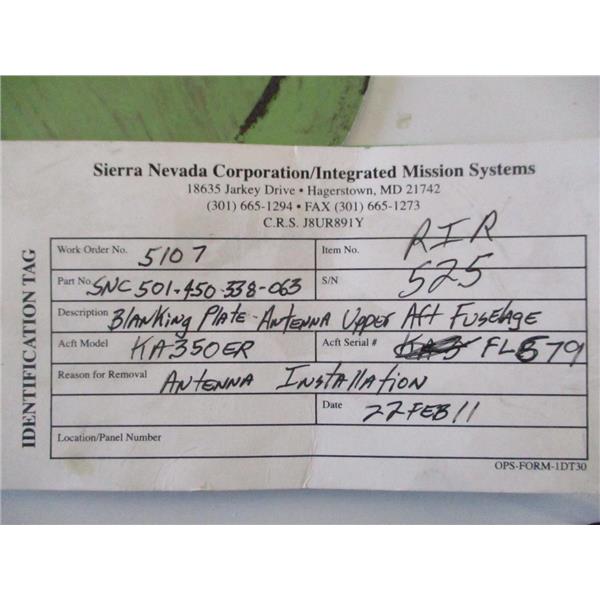 Sierra Nevada Corporation/Integrated Mission Systems
18635 Jarkey Drive • Hagerstown, MD 21742
(301) 665-1294 • FAX (301) 665-1273
C.R.S. J8UR891Y
IDENTIFICATION TAG
Work Order No. 5107 Item No. RIR
Part No. SNC501-450-338-063 S/N 525
Description Blanking Plate - Antenna Upper Aft Fuselage
Acft Model KA350ER Acft Serial # FL579
Reason for Removal Antenna Installation
Date 22FEB11
Location/Panel Number
OPS-FORM-1DT30